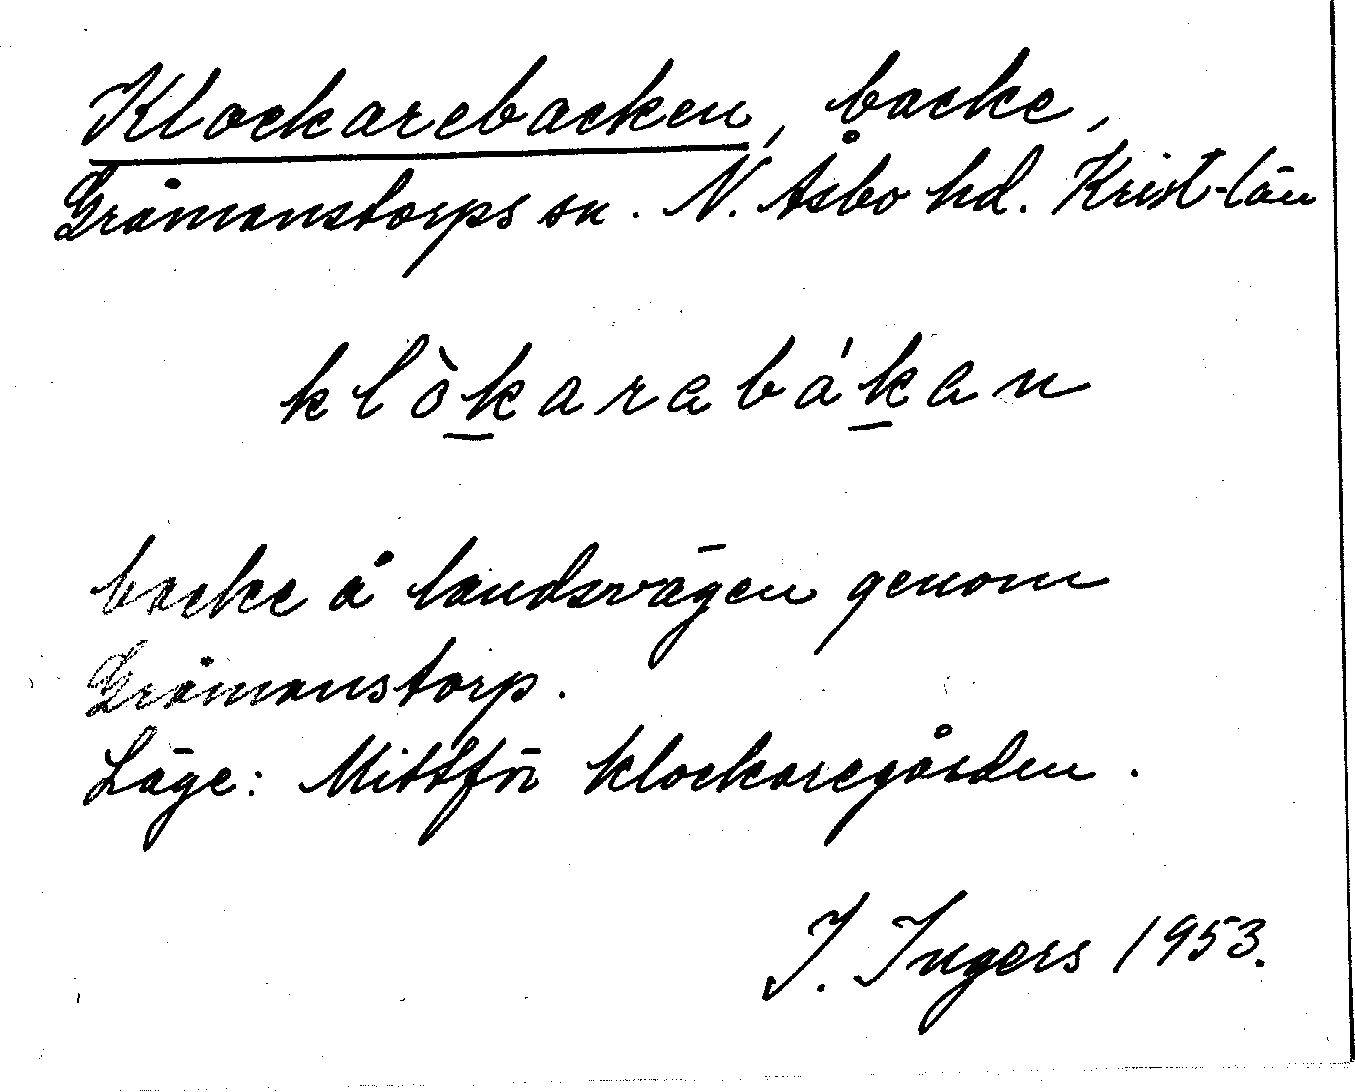 Klockarebacken, backe,
Gråmanstorps sn. N. Åsbo hd. Krist-län
klòkarabákan
backe å landsvägen genom
Gråmanstorp.
Läge: Mittför klockaregården.
I. Ingers 1953.